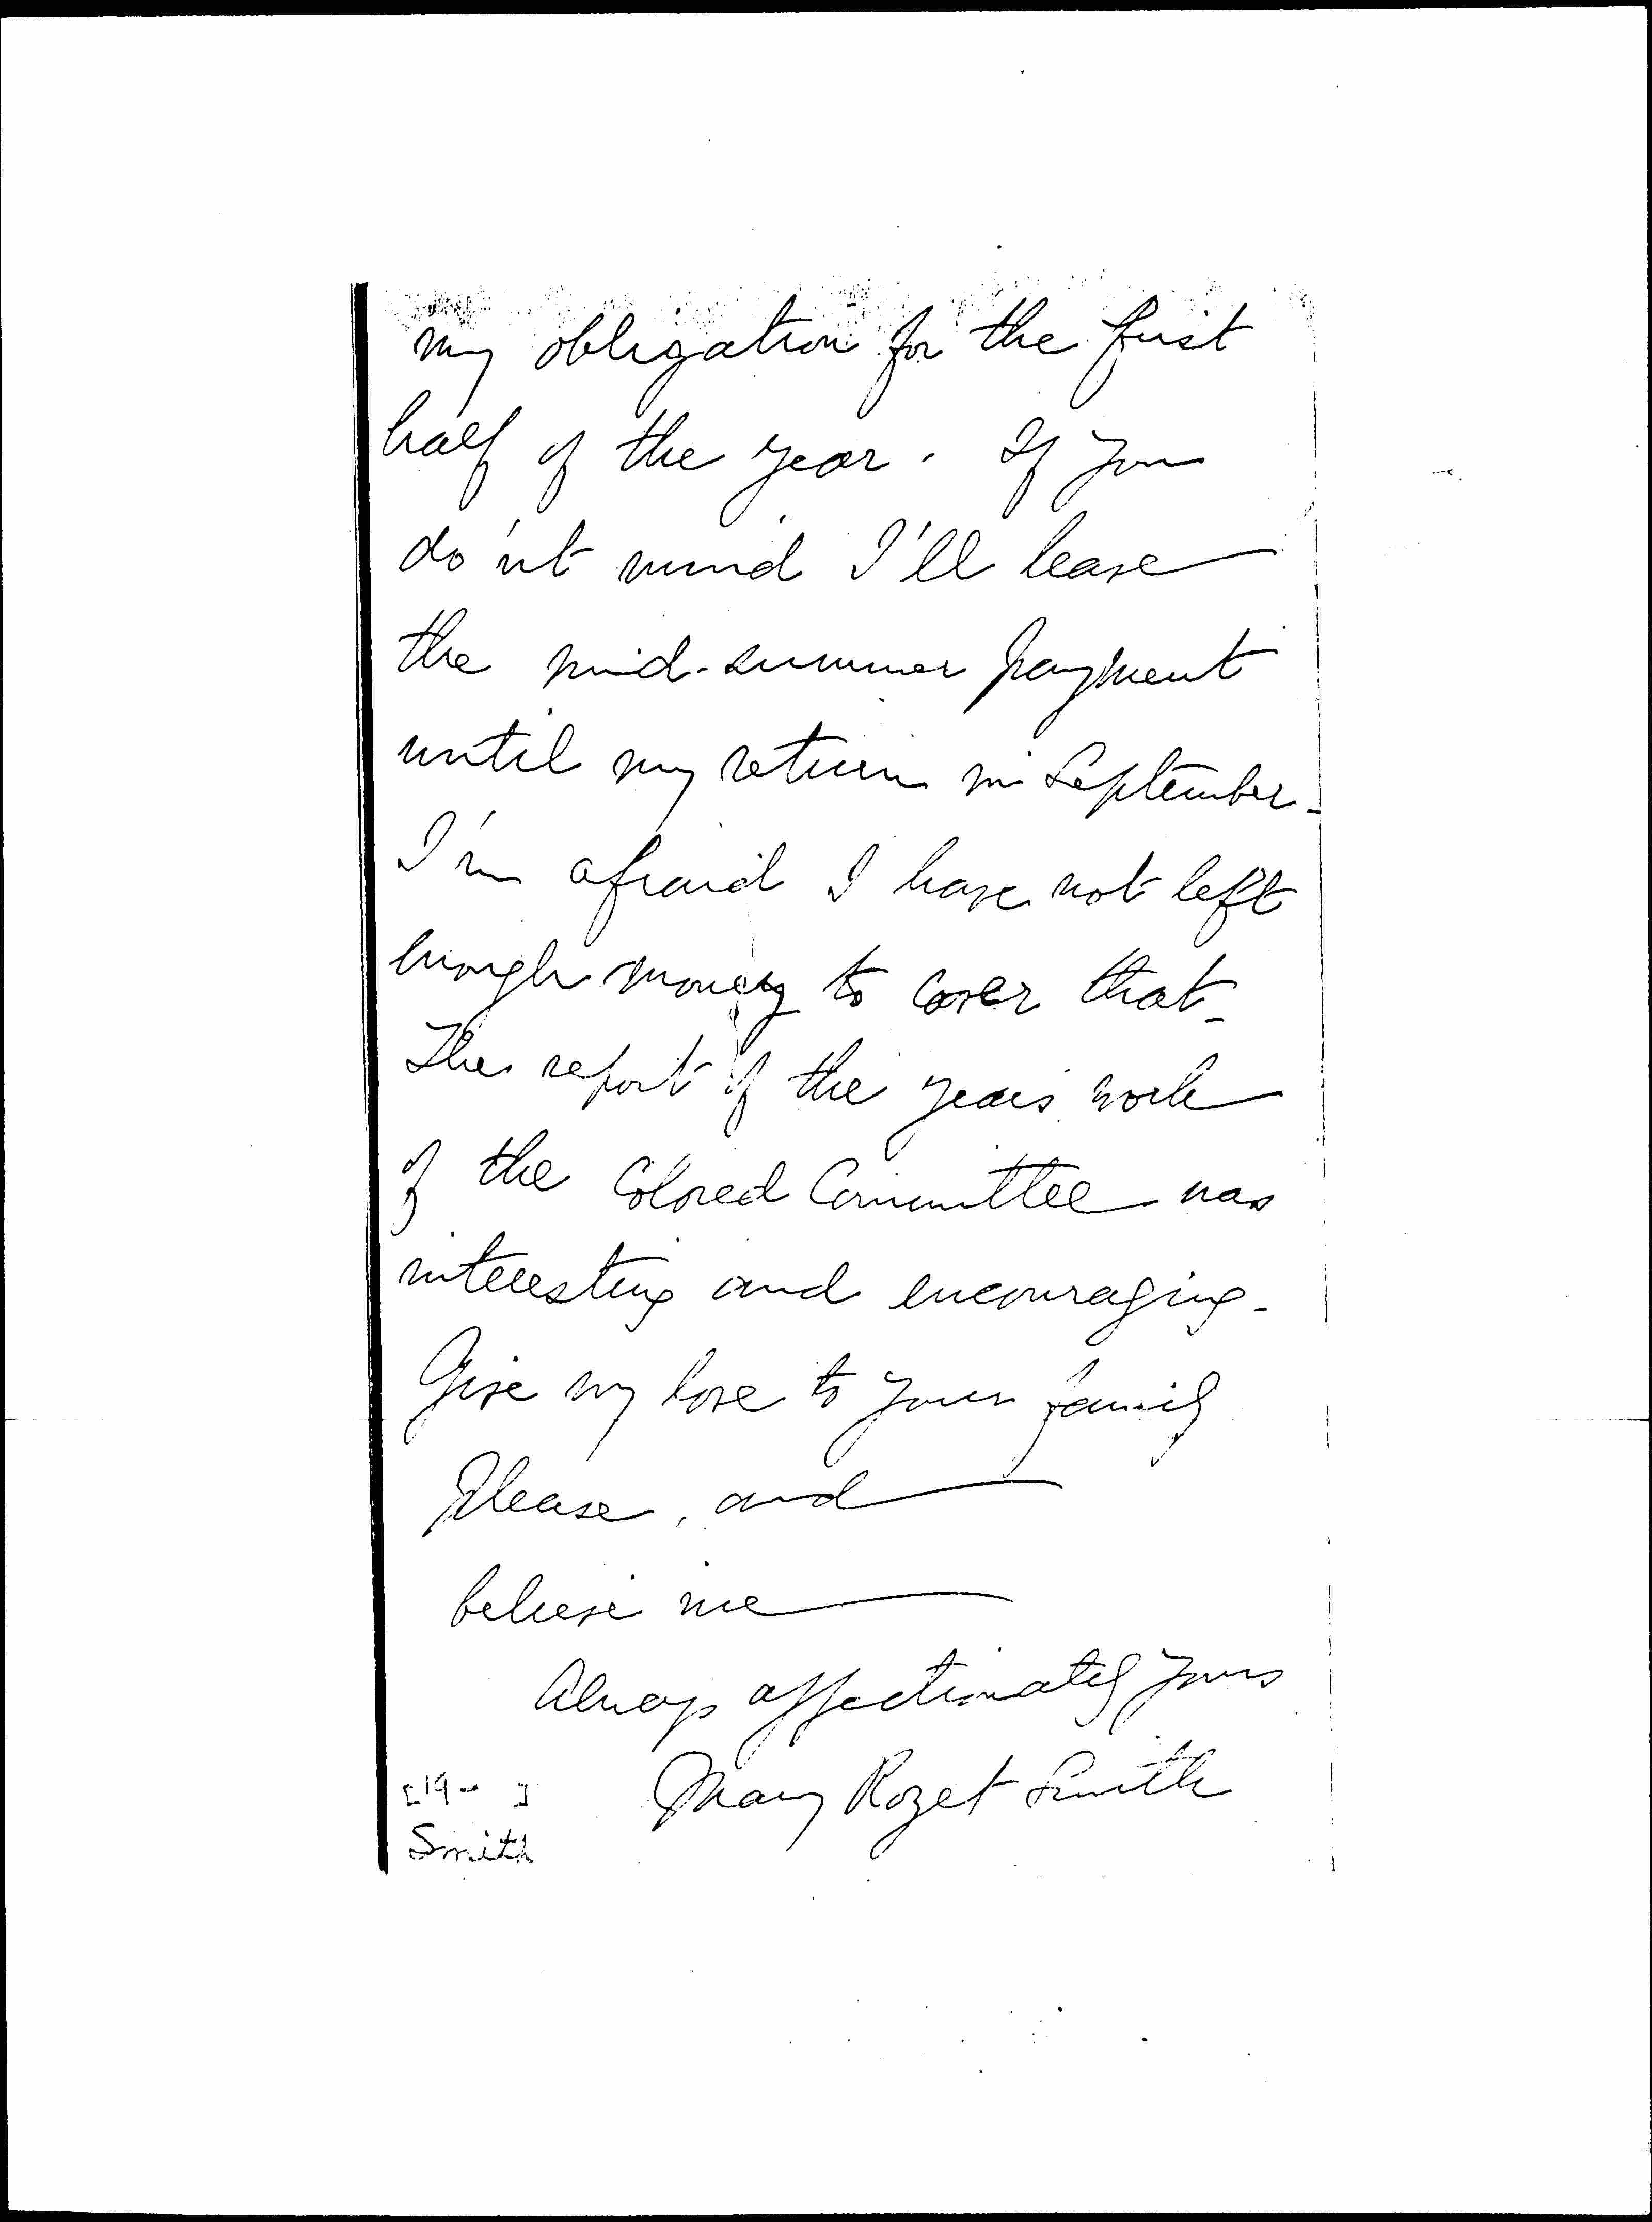 my obligation for the first
half of the year. If you
do'nt mind I'll leave
the mid-summer payment
until my return in September-
I'm afraid I have not left
enough money to cover that-
The report of the years work
of the Colored Committee was
interesting and encouraging-
Give my love to your family
Please, and
believe me
Always affectionately yours
Mary Rozet Smith
[19- ]
Smith